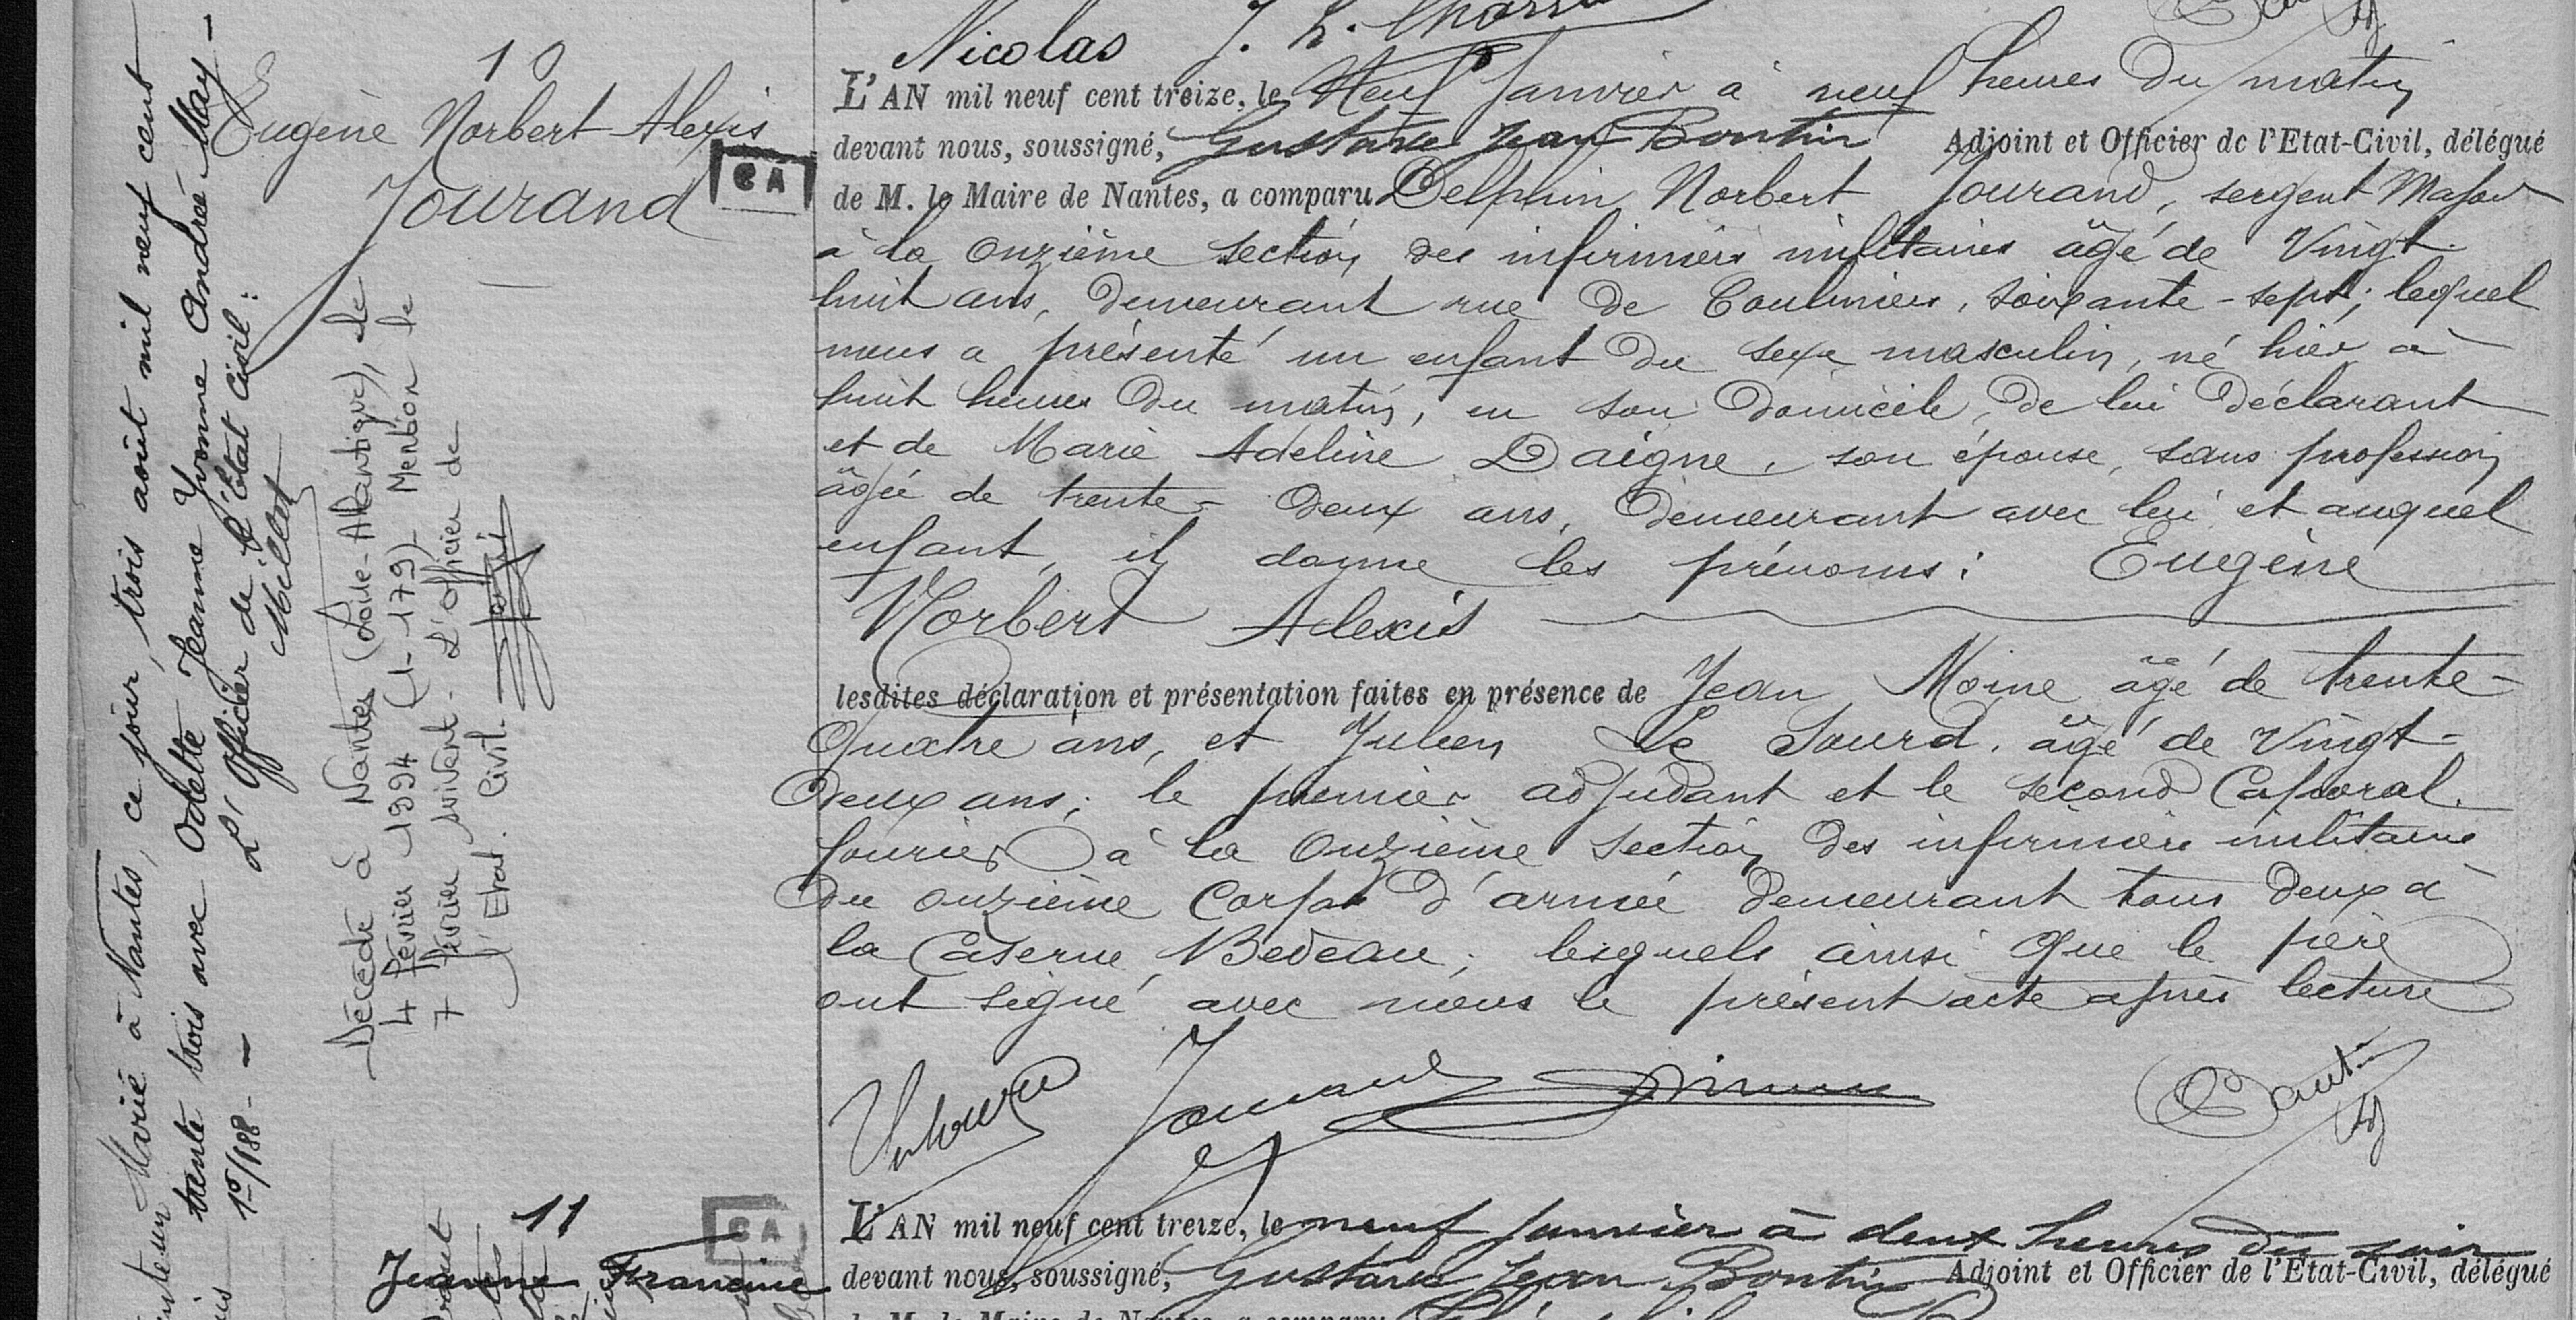 Nicolas
10
Eugène Norbert Alexis
Jourand
CA
L'AN mil neuf cent treize, le Neuf Janvier à neuf heures du matin
devant nous, soussigné, Gustave Jean Boutin Adjoint et Officier de l'Etat-Civil, délégué
de M. le Maire de Nantes, a comparu Delphin Norbert Jourand, sergent Major
à la onzième section des infirmiers militaires âgé de Vingt-
huit ans, demeurant rue de Coulmiers, soixante-sept; lequel
nous a présenté un enfant du sexe masculin, né hier à
huit heures du matin, en son domicile, de lui déclarant
et de Marie Adeline Daigne, son épouse, sans profession
âgée de trente-deux ans, demeurant avec lui et auquel
enfant il donne les prénoms: Eugène
Norbert Alexis
lesdites déclaration et présentation faites en présence de Jean Moine âgé de trente-
quatre ans, et Julien Le Sourd, âgé de Vingt-
deux ans; le premier adjudant et le second Caporal
fourier à la Onzième section des infirmiers militaires
du onzième Corps d'armée demeurant tous deux à
la Caserne Bedeau; lesquels ainsi que le père
ont signé avec nous le présent acte après lecture
Jourand
Boutin
Marié à Nantes, ce jour, trois août mil neuf cent
trente trois avec Odette Jeanne Yvonne Andrée May -
1º/188 - L'Officier de l'État Civil:
Millot
Décédé à Nantes (Loire-Atlantique), le
4 février 1994 (1-179) - Mention le
7 février suivant - L'Officier de
l'Etat. Civil.
11
CA
Jeanne Francine
L'AN mil neuf cent treize, le neuf Janvier à deux heures du soir
devant nous, soussigné, Gustave Jean Boutin Adjoint et Officier de l'Etat-Civil, délégué